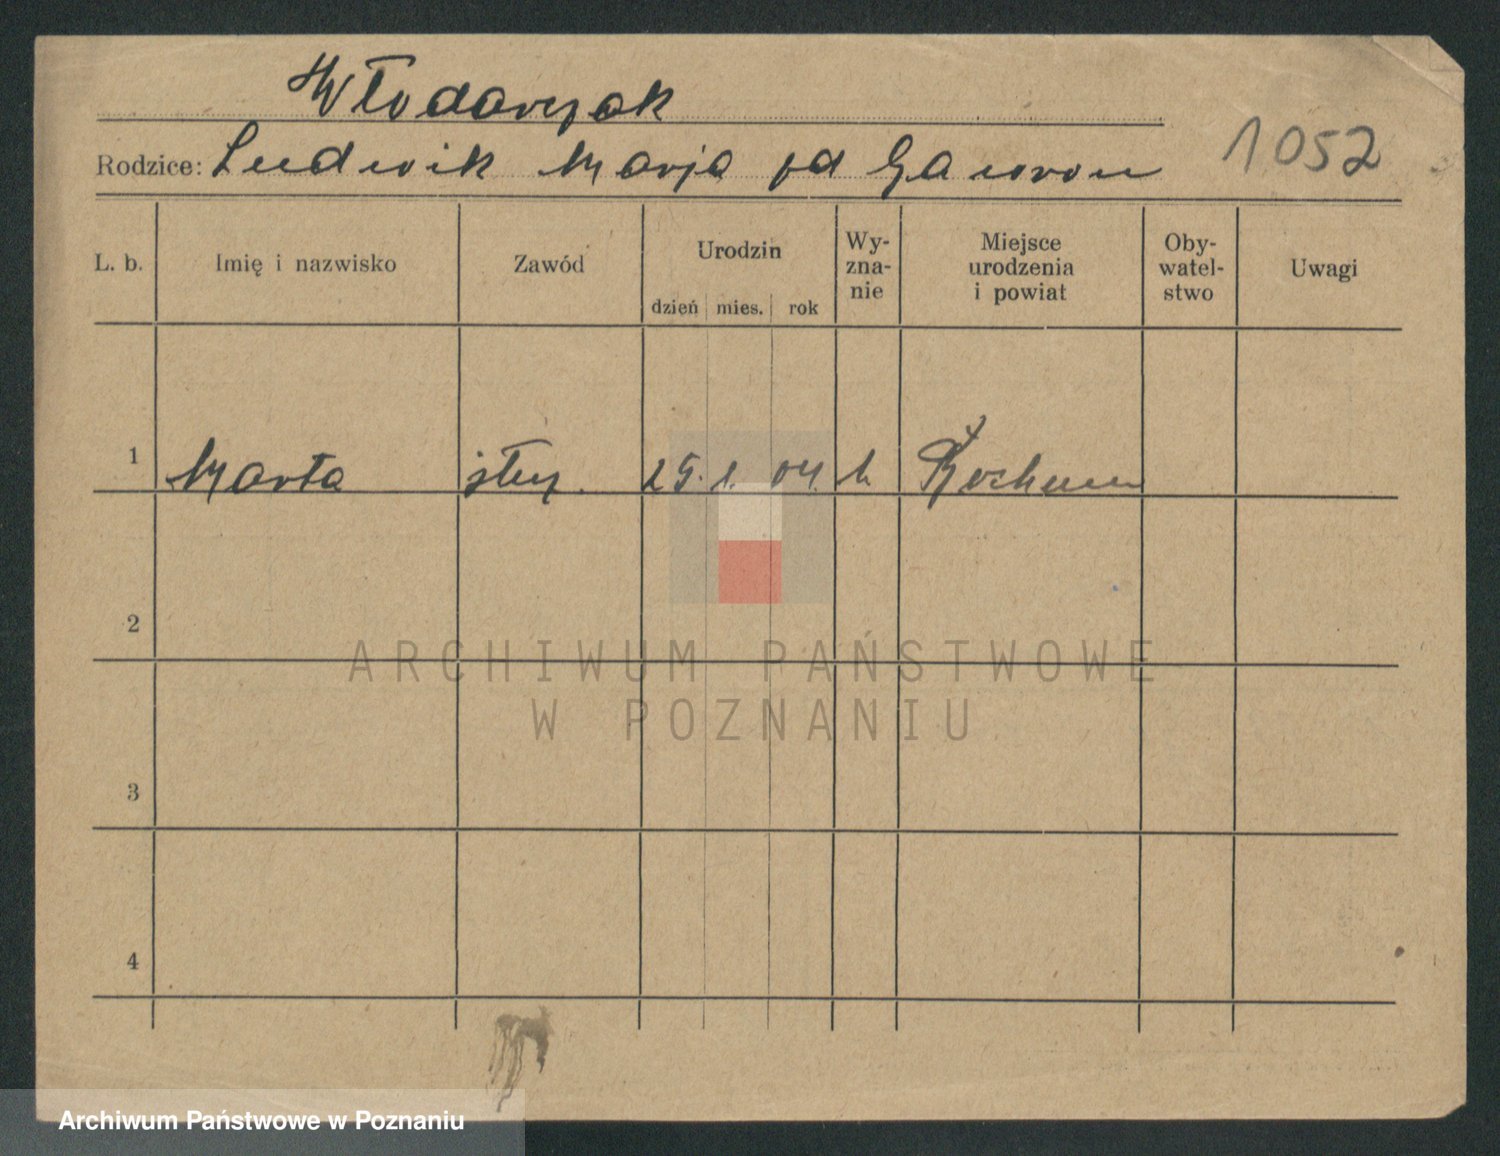 Włodarczak
1052
Rodzice: Ludwik Marja pd Gawron
L. b.
Imię i nazwisko
Zawód
Urodzin
dzień mies. rok
Wy-
zna-
nie
Miejsce
urodzenia
i powiat
Oby-
watel-
stwo
Uwagi
1 Marta 1. 04. Bochum
2
3
4
ARCHIWUM PAŃSTWOWE
W POZNANIU
Archiwum Państwowe w Poznaniu